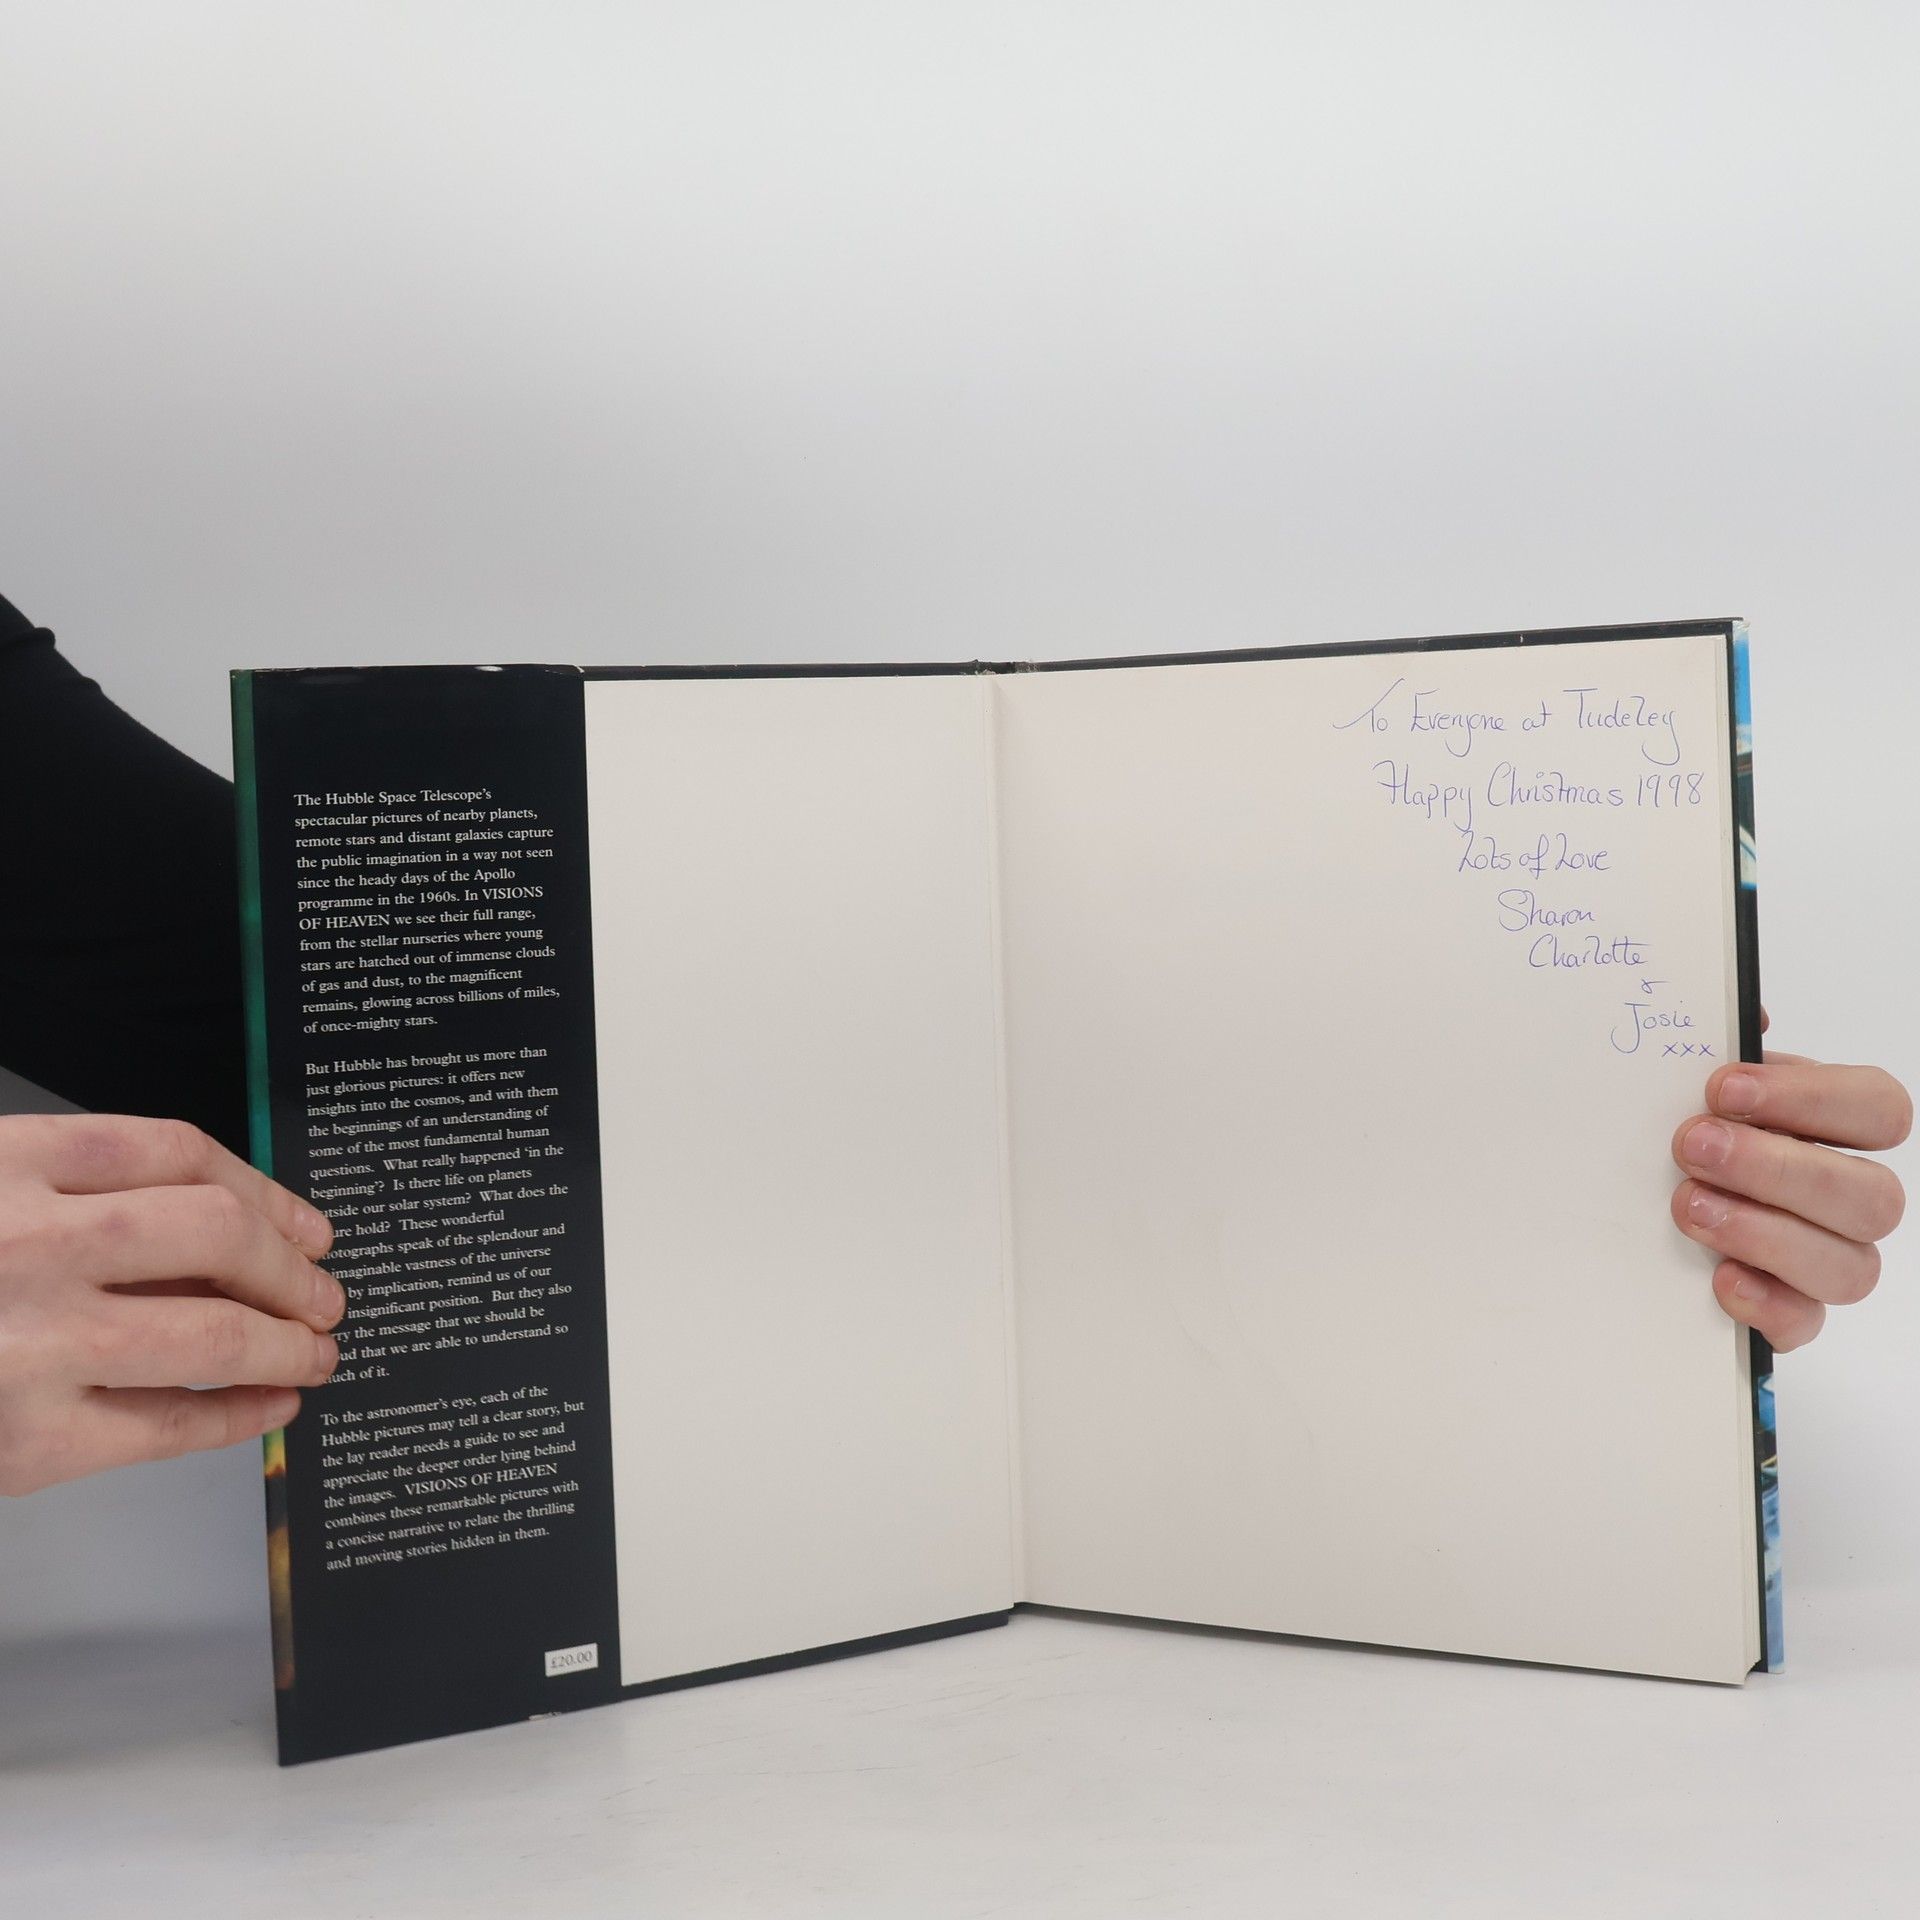 The Hubble Space Telescope's
spectacular pictures of nearby planets,
remote stars and distant galaxies capture
the public imagination in a way not seen
since the heady days of the Apollo
programme in the 1960s. In VISIONS
OF HEAVEN we see their full range,
from the stellar nurseries where young
stars are hatched out of immense clouds
of gas and dust, to the magnificent
remains, glowing across billions of miles,
of once-mighty stars.
But Hubble has brought us more than
just glorious pictures: it offers new
insights into the cosmos, and with them
the beginnings of an understanding of
some of the most fundamental human
questions. What really happened 'in the
beginning'? Is there life on planets
utside our solar system? What does the
ure hold? These wonderful
otographs speak of the splendour and
imaginable vastness of the universe
by implication, remind us of our
insignificant position. But they also
rry the message that we should be
ud that we are able to understand so
uch of it.
To the astronomer's eye, each of the
Hubble pictures may tell a clear story, but
the lay reader needs a guide to see and
appreciate the deeper order lying behind
the images. VISIONS OF HEAVEN
combines these remarkable pictures with
a concise narrative to relate the thrilling
and moving stories hidden in them.
£20.00
To Everyone at Tudeley
Happy Christmas 1998
Lots of Love
Sharon
Charlotte
&
Josie
xxx